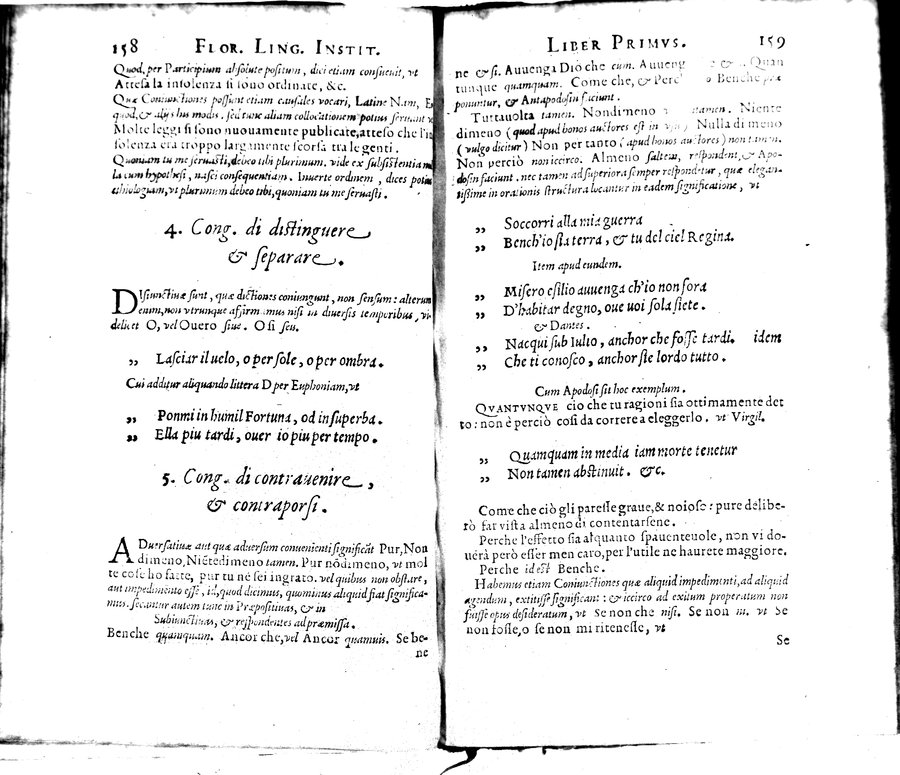 158 FLOR. LING. INSTIT.
Quod, per Participium absolute positum, dici etiam consueuit, vt
Attesa la insolenza si sono ordinate, &c.
Quæ Coniunctiones possunt etiam causales vocari, Latine Nam, E
quod, & alys hus modis. sed tunc aliam collocationem potius seruant v
Molte leggi si sono nuouamente publicate, atteso che l'in
solenza era troppo largamente scorsa tra le genti.
Quoniam tu me seruasti, deoco tibi plurimum. vide ex subsistentia
la cum hypothesi, nasci consequentiam. Inuerte ordinem, dices potiu
æthiologiam, vt plurimum debeo tibi, quoniam tu me seruasti.
4. Cong. di distinguere
& separare.
DIsiunctiuæ sunt, quæ dictiones coniungunt, non sensum: alterum
enim, non vtrunque affirmamus nisi in diuersis temporibus, vi-
delicet O, vel Ouero siue. O si seu.
„ Lasciar il uelo, o per sole, o per ombra.
Cui additur aliquando littera D per Euphoniam, vt
„ Ponmi in humil Fortuna, od in superba.
„ Ella piu tardi, ouer io piu per tempo.
5. Cong. di contrauenire,
& contraporsi.
ADuersatiuæ aut quæ aduersum conuenienti significāt Pur, Non
dimeno, Niētedimeno tamen. Pur nōdimeno, vt mol
te cose ho fatte, pur tu nè sei ingrato. vel quibus non obstare,
aut impedimento esse, id, quod dicimus, quominus aliquid fiat significa-
mus. secantur autem tunc in Præpositiuas, & in
Subiunctiuas, & respondentes ad præmissa.
Benche quamquam. Ancor che, vel Ancor quamuis. Se be-
ne
LIBER PRIMVS. 159
ne & si. Auuenga Dio che cum. Auueng & . Quan
tunque quamquam. Come che, & Perc' o Benche præ
ponuntur, & Antapodosin faciunt.
Tuttauolta tamen. Nondimeno tamen. Niente
dimeno (quod apud bonos auctores est in vsu) Nulla di meno
(vulgo dicitur) Non per tanto (apud bonos auctores) non tamen.
Non perciò non iccirco. Almeno saltem, respondent, & Apo-
dosin faciunt. nec tamen ad superiora semper respondētur, quæ elegan-
tissime in orationis structura locantur in eadem significatione, vt
„ Soccorri alla mia guerra
„ Bench'io sia terra, & tu del ciel Regina.
Item apud eundem.
„ Misero esilio auuenga ch'io non fora
„ D'habitar degno, oue uoi sola siete.
& Dantes.
„ Nacqui sub Iulio, anchor che fosse tardi. idem
„ Che ti conosco, anchor sie lordo tutto.
Cum Apodosi sit hoc exemplum.
QVANTVNQVE cio che tu ragioni sia ottimamente det
to: non è perciò cosi da correre a eleggerlo. vt Virgil.
„ Quamquam in media iam morte tenetur
„ Non tamen abstinuit. &c.
Come che ciò gli paresse graue, & noioso: pure delibe-
rò far vista almeno di contentarsene.
Perche l'effetto sia alquanto spauenteuole, non vi do-
uérà però esser men caro, per l'utile ne haurete maggiore.
Perche id est Benche.
Habemus etiam Coniunctiones quæ aliquid impedimenti, ad aliquid
agendum, extitisse significant: & iccirco ad exitum properatum non
fuisse opus desideratum, vt Se non che nisi. Se non ni. vt Se
non fosse, o se non mi ritenesse, vt
Se